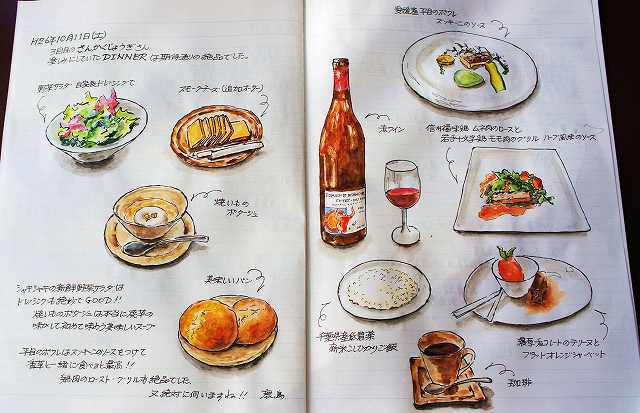 H26年10月11日(土)
3回目のさんかくじょうぎさん
楽しみにしていたDINNERは期待通りの絶品でした。
野菜サラダ 自家製ドレッシングで
スモークチーズ(追加オーダー)
焼いもの
ポタージュ
美味しいパン
シャキシャキの新鮮野菜サラダは
ドレッシングも絶妙でGOOD!!
焼いものポタージュは本当に
味がして初めて味わう美味しいスープ
平目のポワレはズッキーニのソースをつけて
一緒に食べると最高!!
鶏肉のロースト・グリルも絶品でした。
又絶対に伺いますね!!
平目のポワレ
ズッキーニのソース
赤ワイン
信州福味鶏 ムネ肉のロースと
モモ肉のグリル ハーブ風味のソース
千葉県産
新米こしひかりご飯
濃厚ショコラのテリーヌと
ブラッドオレンジシャーベット
珈琲